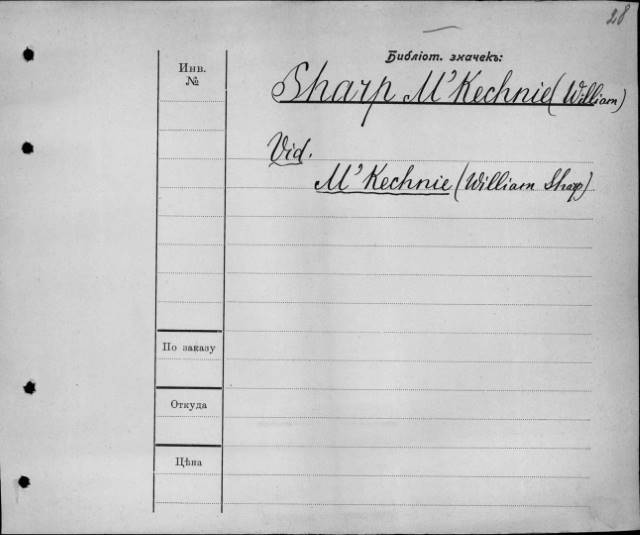 28
Библіот. значекъ:
Инв.
№
Sharp M'Kechnie (William)
Vid.
M'Kechnie (William Sharp)
По заказу
Откуда
Цѣна